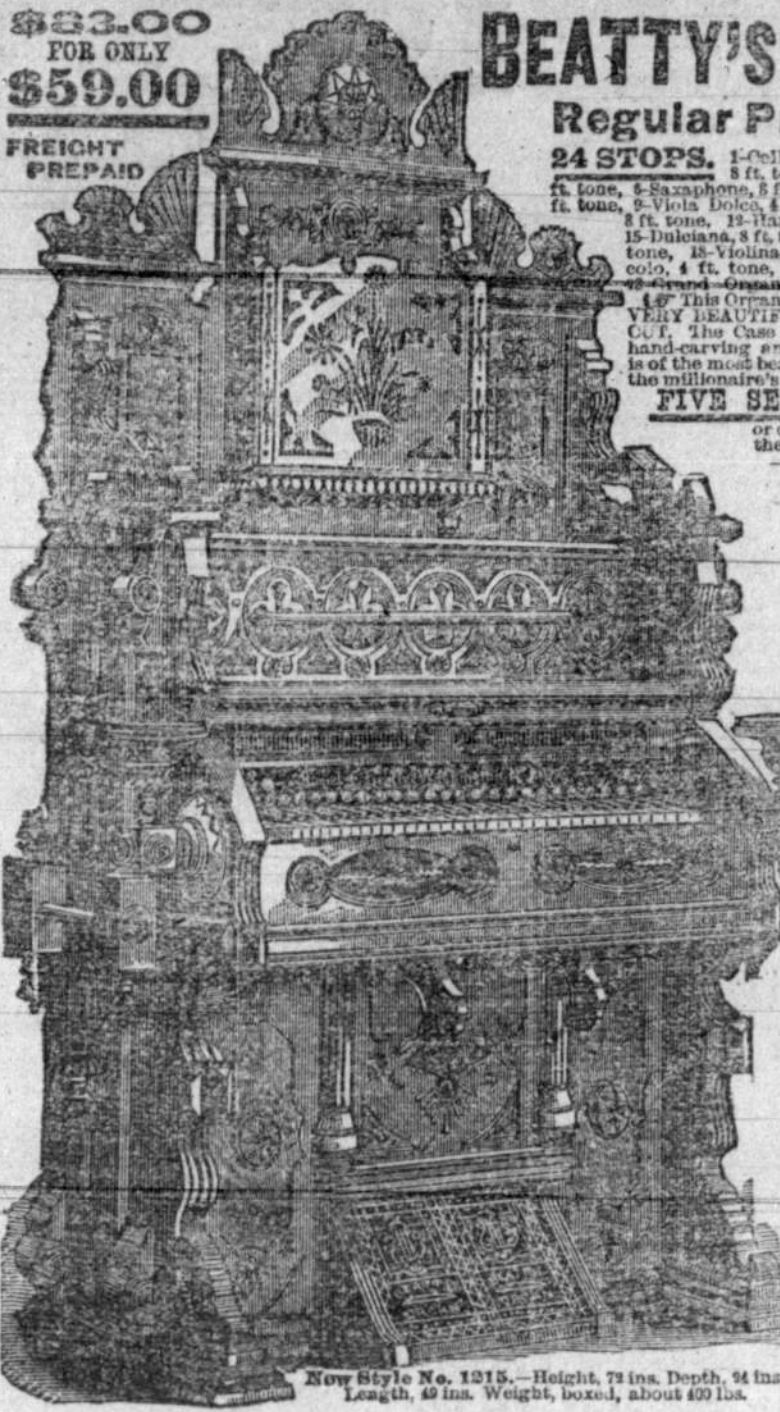 $83.00
FOR ONLY
$59.00
FREIGHT
PREPAID
BEATTY'S
Regular P
24 STOPS. 1-Cell
8 ft. t
ft. tone, 6-Saxaphone, 8
ft. tone, 9-Viola Dolce, 4
8 ft. tone, 12-Ha
15-Dulciana, 8 ft.
tone, 18-Violina
colo, 4 ft. tone,
Grand Organ
This Organ
VERY BEAUTIF
OUT. The Case
hand-carving an
is of the most be
the millionaire's
FIVE SE
or
the
New Style No. 1215.—Height, 72 ins. Depth, 24 ins
Length, 49 ins. Weight, boxed, about 400 lbs.